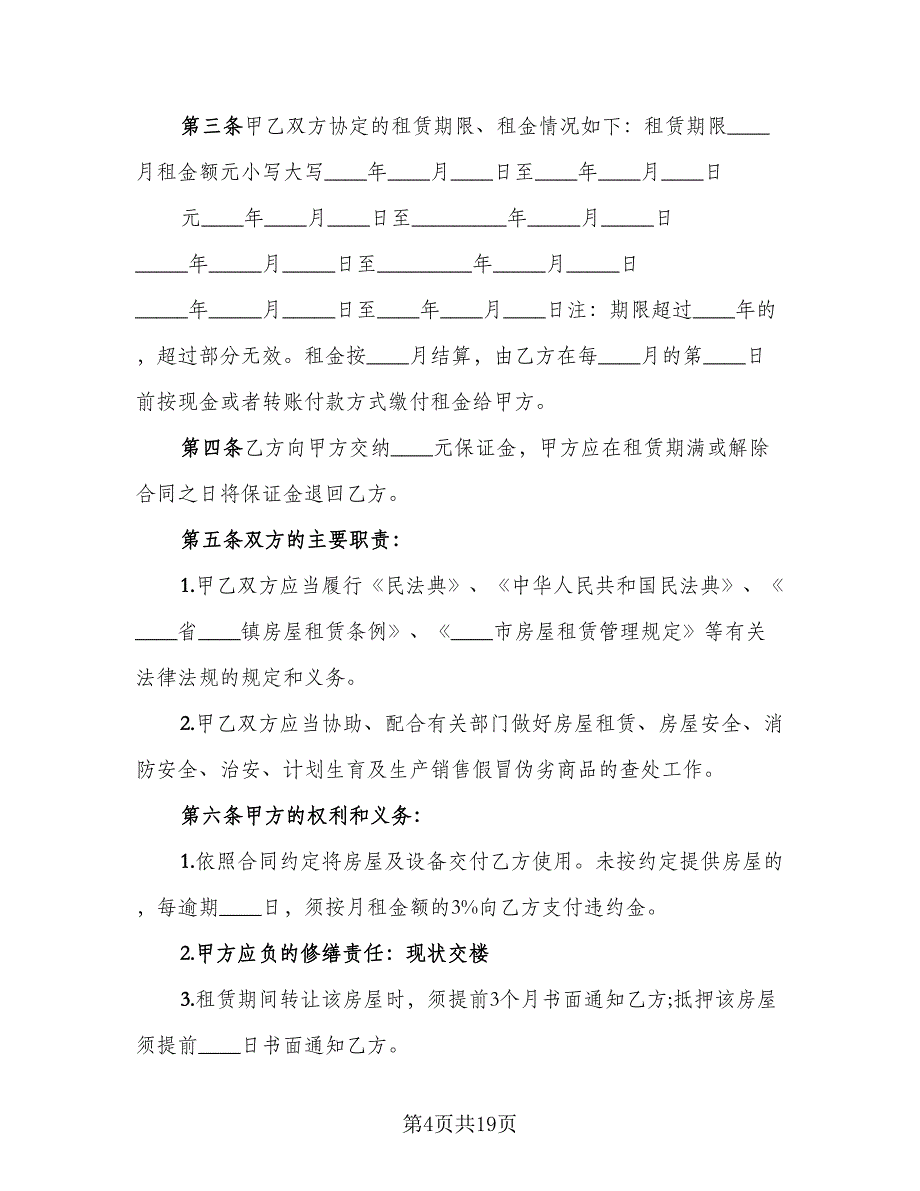 第三条甲乙双方协定的租赁期限、租金情况如下：租赁期限____
月租金额元小写大写____年____月____日至____年____月____日
元____年____月____日至_________年_____月_____日
_____年_____月_____日至_________年_____月_____日
_____年_____月_____日至____年____月____日注：期限超过____年的
，超过部分无效。租金按____月结算，由乙方在每____月的第____日
前按现金或者转账付款方式缴付租金给甲方。
第四条乙方向甲方交纳____元保证金，甲方应在租赁期满或解除
合同之日将保证金退回乙方。
第五条双方的主要职责：
1.甲乙双方应当履行《民法典》、《中华人民共和国民法典》、《
____省____镇房屋租赁条例》、《____市房屋租赁管理规定》等有关
法律法规的规定和义务。
2.甲乙双方应当协助、配合有关部门做好房屋租赁、房屋安全、消
防安全、治安、计划生育及生产销售假冒伪劣商品的查处工作。
第六条甲方的权利和义务：
1.依照合同约定将房屋及设备交付乙方使用。未按约定提供房屋的
，每逾期____日，须按月租金额的3%向乙方支付违约金。
2.甲方应负的修缮责任：现状交楼
3.租赁期间转让该房屋时，须提前3个月书面通知乙方;抵押该房屋
须提前____日书面通知乙方。
第4页共19页